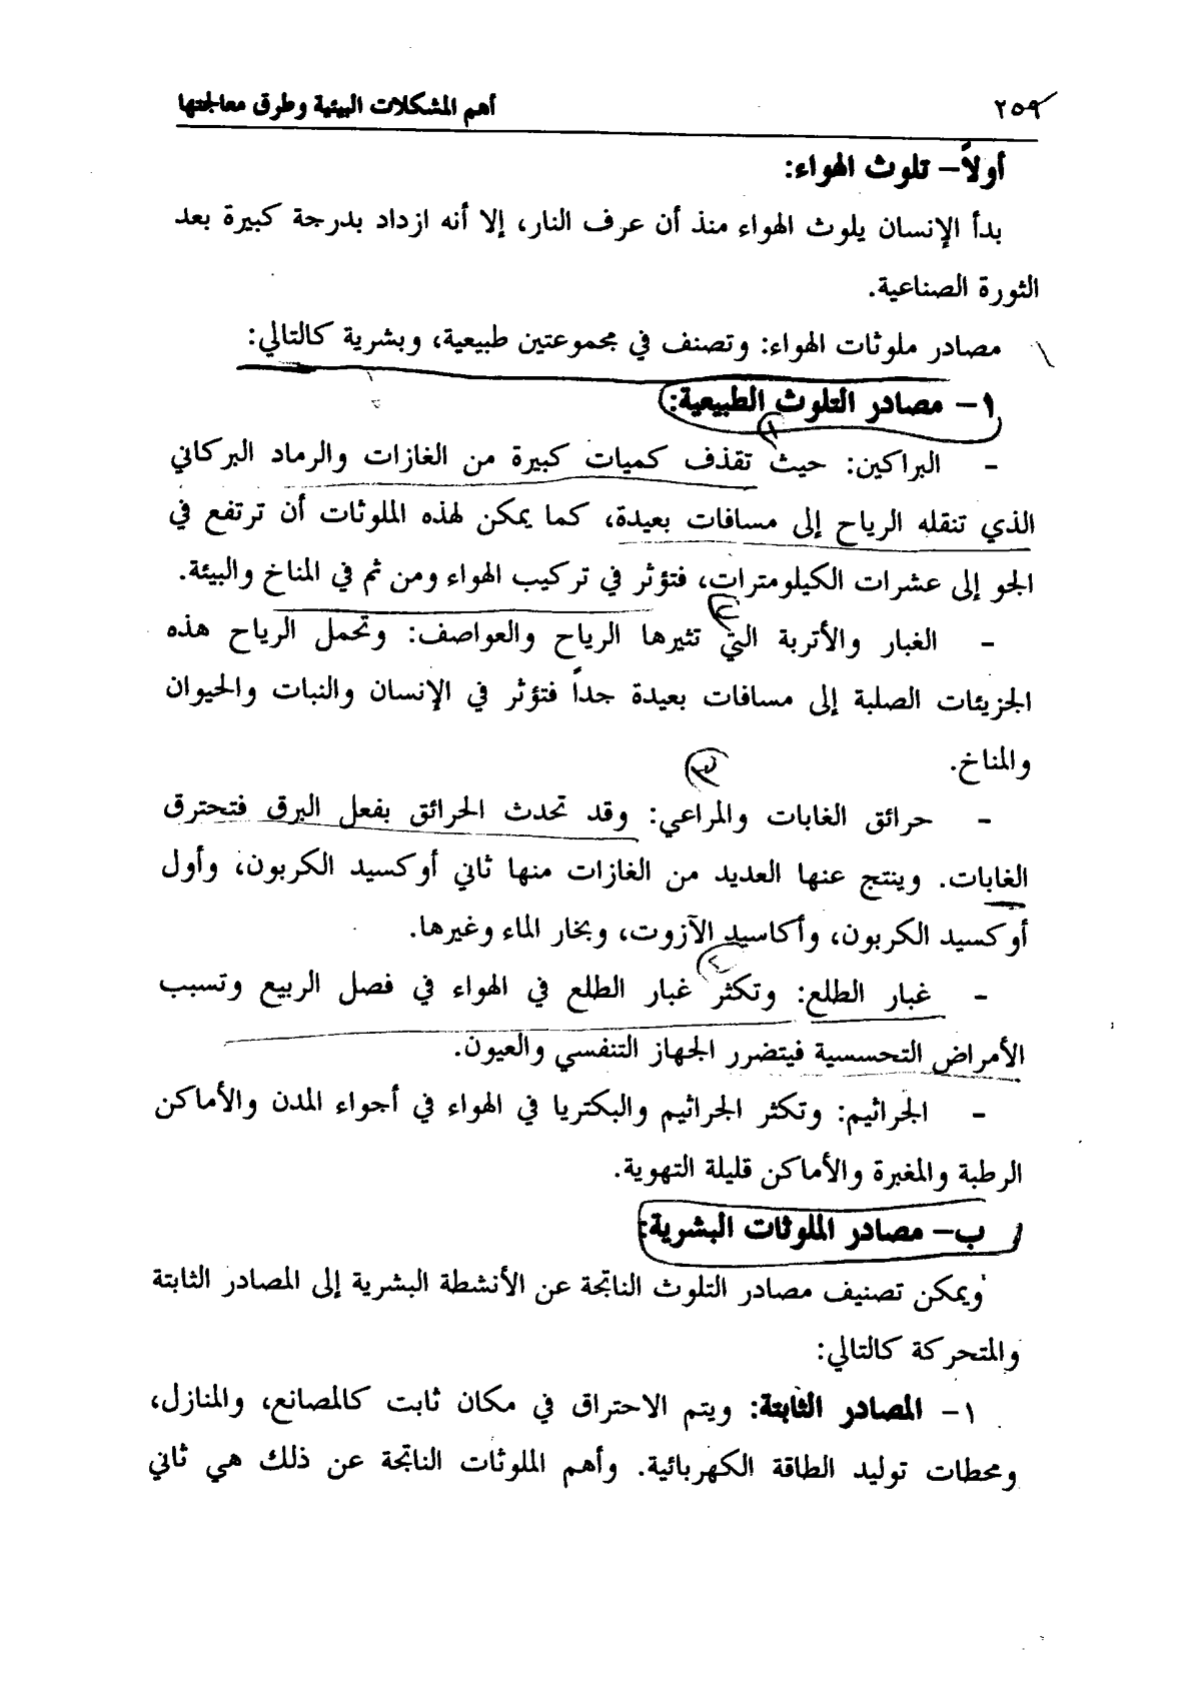 ٢٥٩ أهم المشكلات البيئية وطرق معالجتها
أولاً– تلوث الهواء:
بدأ الإنسان يلوث الهواء منذ أن عرف النار، إلا أنه ازداد بدرجة كبيرة بعد
الثورة الصناعية.
مصادر ملوثات الهواء: وتصنف في مجموعتين طبيعية، وبشرية كالتالي:
١– مصادر التلوث الطبيعية:
١
– البراكين: حيث تقذف كميات كبيرة من الغازات والرماد البركاني
الذي تنقله الرياح إلى مسافات بعيدة، كما يمكن لهذه الملوثات أن ترتفع في
الجو إلى عشرات الكيلومترات، فتؤثر في تركيب الهواء ومن ثم في المناخ والبيئة.
– الغبار والأتربة التي تثيرها الرياح والعواصف: وتحمل الرياح هذه
الجزيئات الصلبة إلى مسافات بعيدة جداً فتؤثر في الإنسان والنبات والحيوان
والمناخ.
– حرائق الغابات والمراعي: وقد تحدث الحرائق بفعل البرق فتحترق
الغابات. وينتج عنها العديد من الغازات منها ثاني أوكسيد الكربون، وأول
أوكسيد الكربون، وأكاسيد الآزوت، وبخار الماء وغيرها.
٤
– غبار الطلع: وتكثر غبار الطلع في الهواء في فصل الربيع وتسبب
الأمراض التحسسية فيتضرر الجهاز التنفسي والعيون.
– الجراثيم: وتكثر الجراثيم والبكتريا في الهواء في أجواء المدن والأماكن
الرطبة والمغبرة والأماكن قليلة التهوية.
ب– مصادر الملوثات البشرية:
ويمكن تصنيف مصادر التلوث الناتجة عن الأنشطة البشرية إلى المصادر الثابتة
والمتحركة كالتالي:
١– المصادر الثابتة: ويتم الاحتراق في مكان ثابت كالمصانع، والمنازل،
ومحطات توليد الطاقة الكهربائية. وأهم الملوثات الناتجة عن ذلك هي ثاني